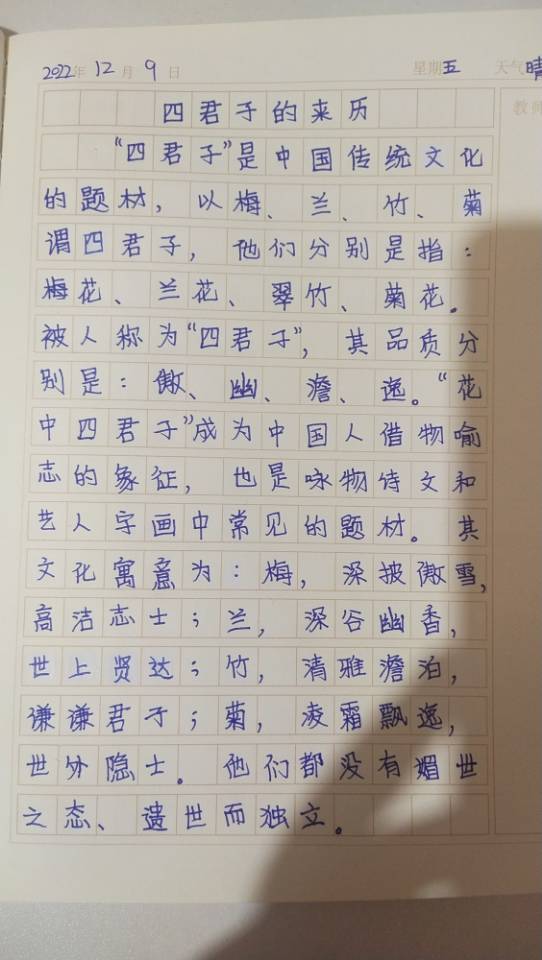 2022年 12月 9日 星期五 天气晴
教师
四君子的来历
“四君子”是中国传统文化
的题材，以梅、兰、竹、菊
谓四君子，他们分别是指：
梅花、兰花、翠竹、菊花。
被人称为“四君子”，其品质分
别是：傲、幽、澹、逸。“花
中四君子”成为中国人借物喻
志的象征，也是咏物诗文和
艺人字画中常见的题材。其
文化寓意为：梅，深披傲雪，
高洁志士；兰，深谷幽香，
世上贤达；竹，清雅澹泊，
谦谦君子；菊，凌霜飘逸，
世外隐士。他们都没有媚世
之态、遗世而独立。